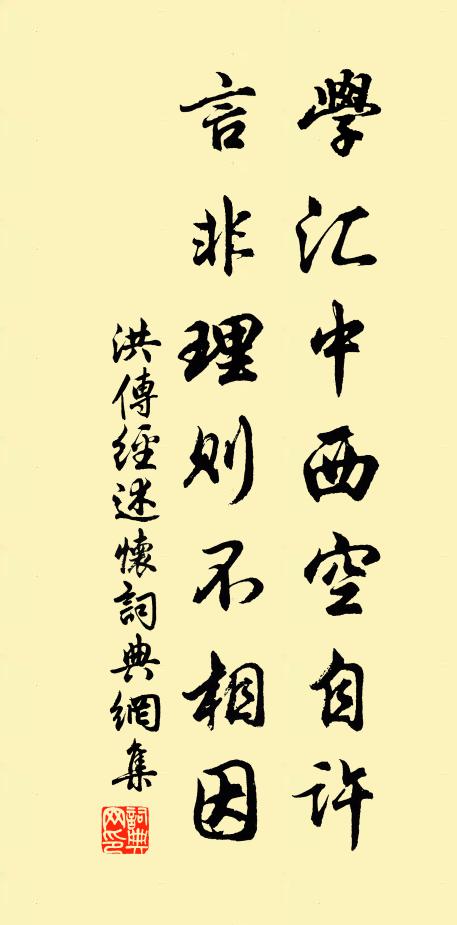 學汇中西空自許
言非理則不相因
洪傳經述懷詞典網集
詞典網印